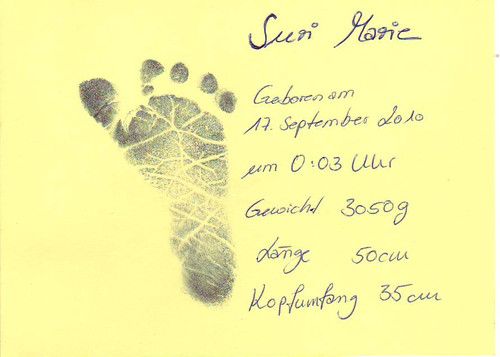 Susi Marie
Geboren am
17. September 2010
um 0:03 Uhr
Gewicht 3050g
Länge 50cm
Kopfumfang 35cm